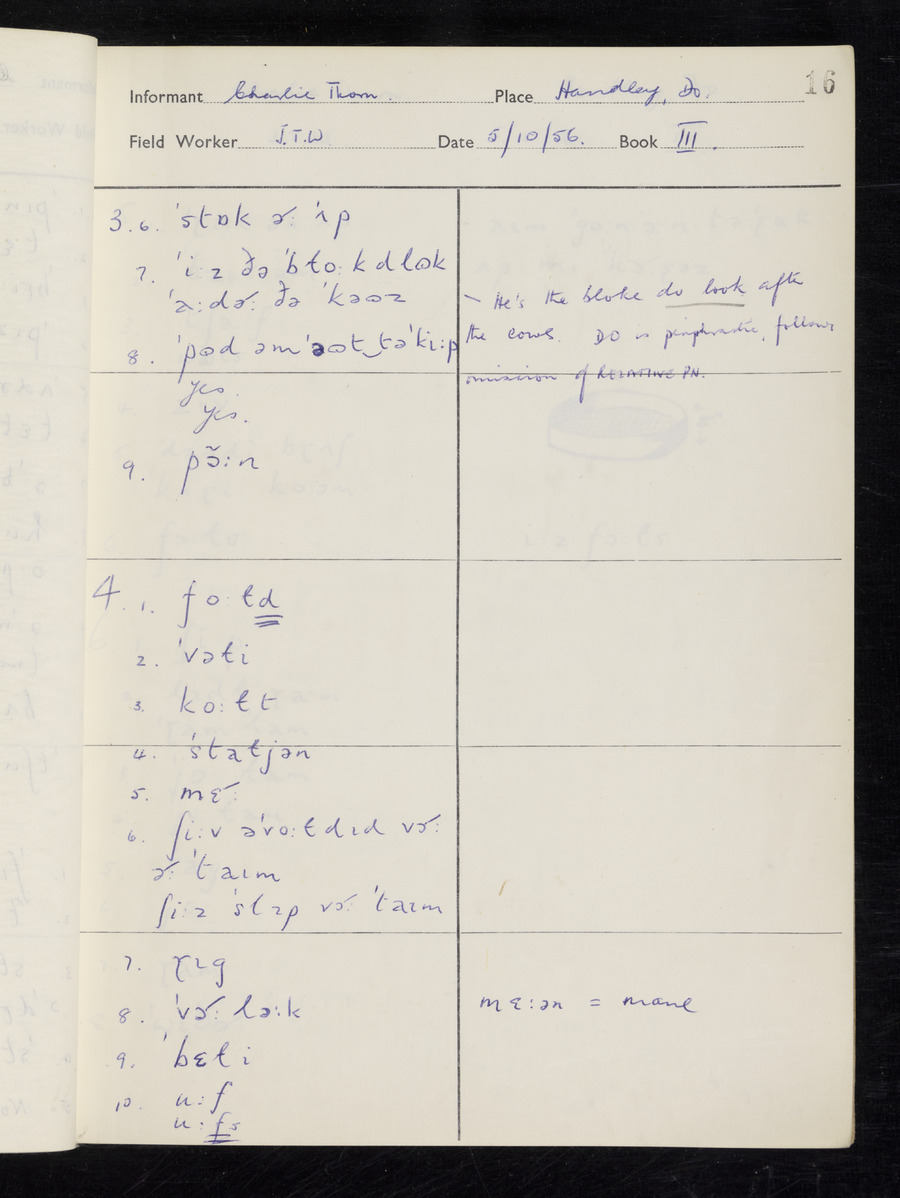 16
Informant Charlie Thorn. Place Handley, Do.
Field Worker J.T.W Date 5/10/56. Book III.
3.6. ˈstɒk ə˞: ˈɪp
7. ˈi:z ðə ˈbɫo:k dlʊk
ˈa:də˞: ðə ˈkəʊz
- He's the bloke do look after
the cows. DO is periphrastic, follows
omission of RELATIVE PN.
8. ˈpʊd əm ˈəʊt‿təˈki:p
yes.
yes.
9. pɔ̃:n
4. 1. fo:ɫd
2. ˈvəɫi
3. ko:ɫt
4. ˈstaɫjən
5. mɛ˞:
6. ʃi:v əˈvo:ɫdɪd və˞:
ə˞: ˈtaɪm
ʃi:z ˈslɪp və˞: ˈtaɪm
7. ɽɪg
8. ˈvə˞: lə:k
mɛ:ən = mane
9. ˈbɛɫi
10. u:f
u:fs